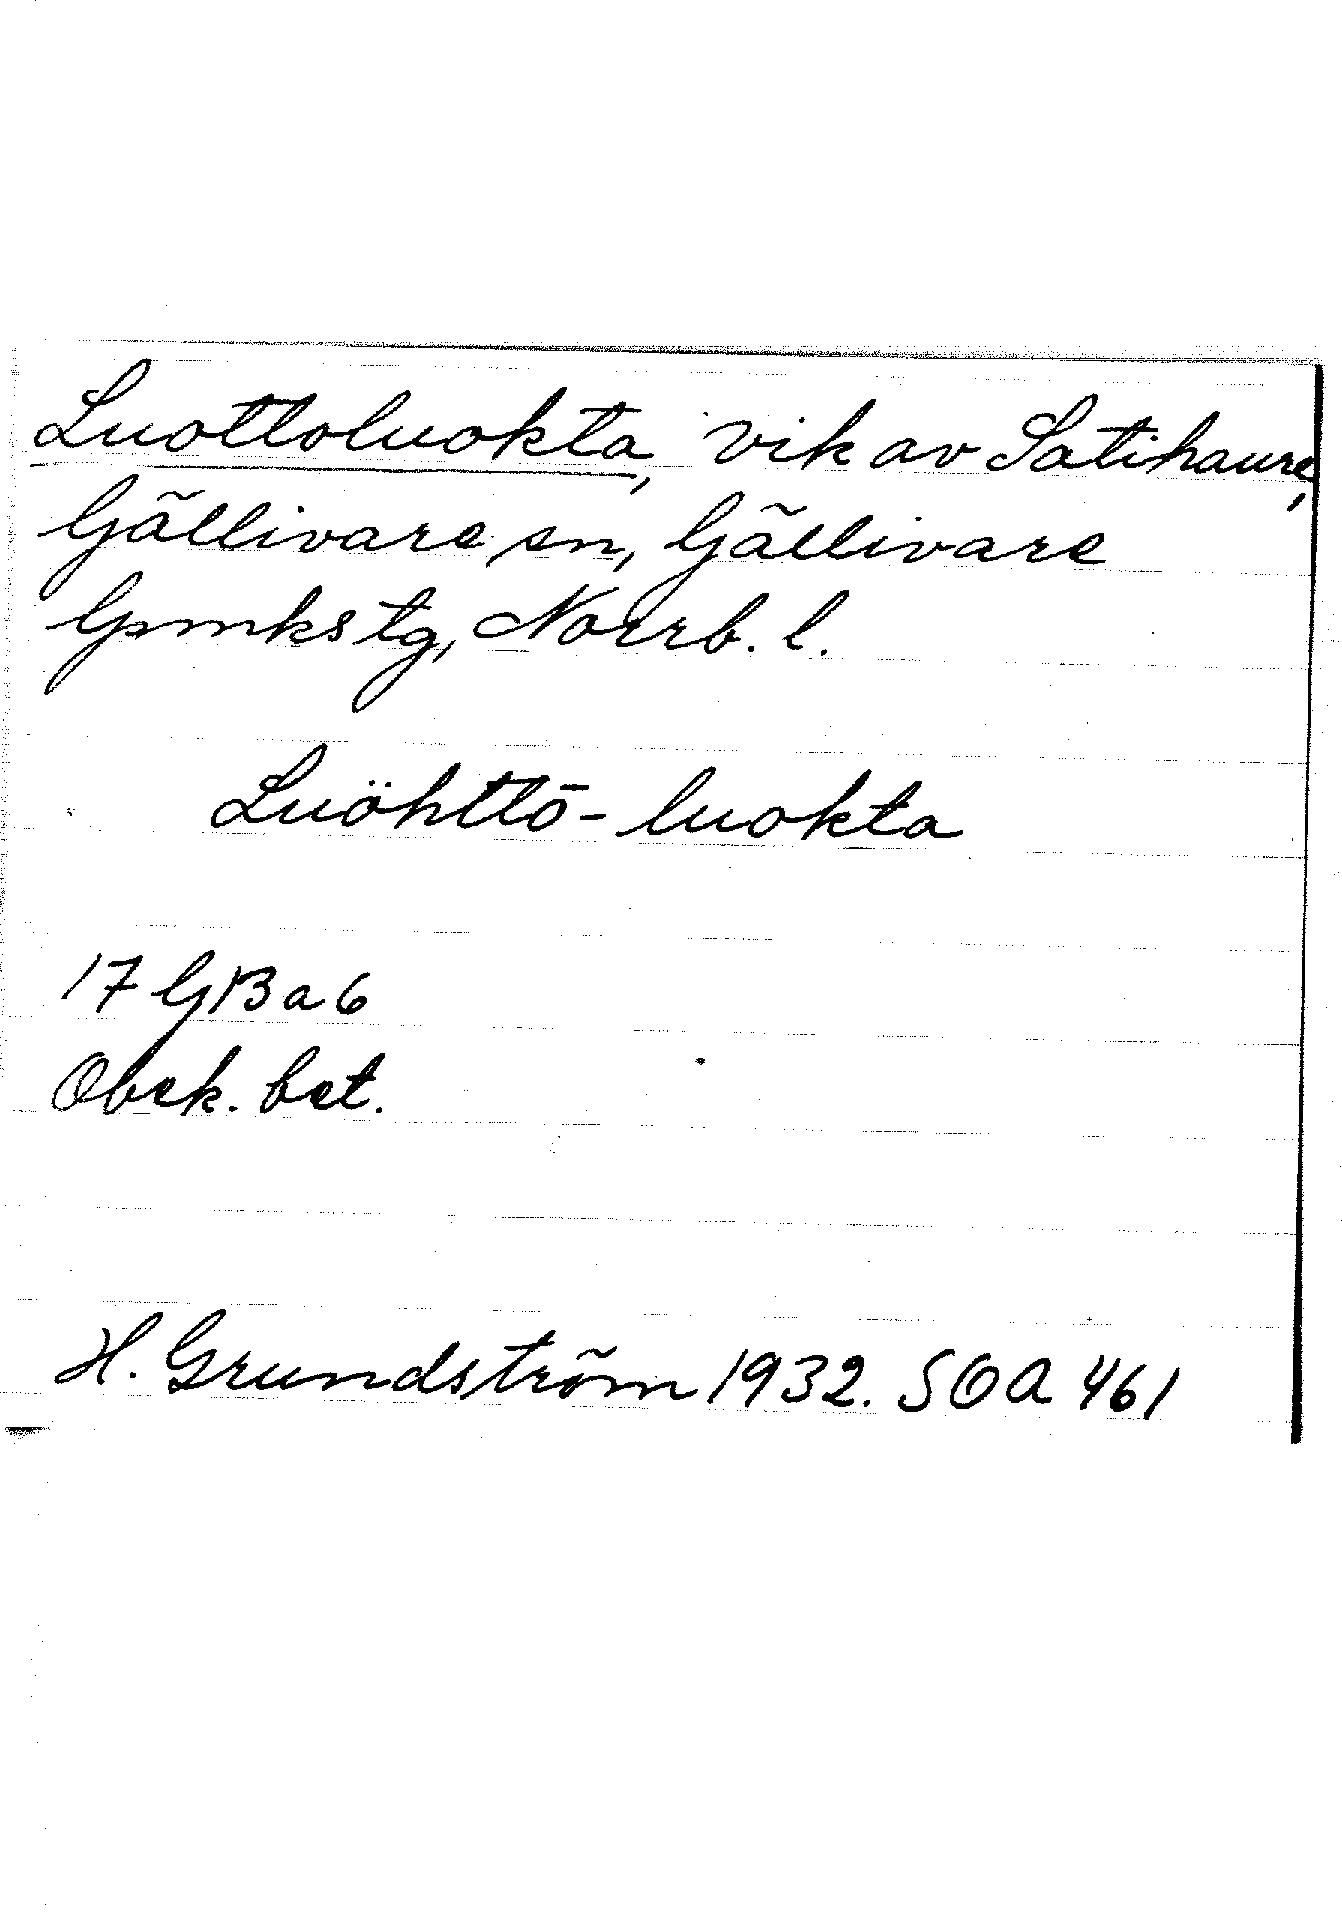 Luottoluokta, vik av Satihaure,
Gällivare sn, Gällivare
lpmkstg, Norrb. l.
Luöhttō-luokta
17 GB a 6
Obek. bet.
H. Grundström 1932. SOA 461